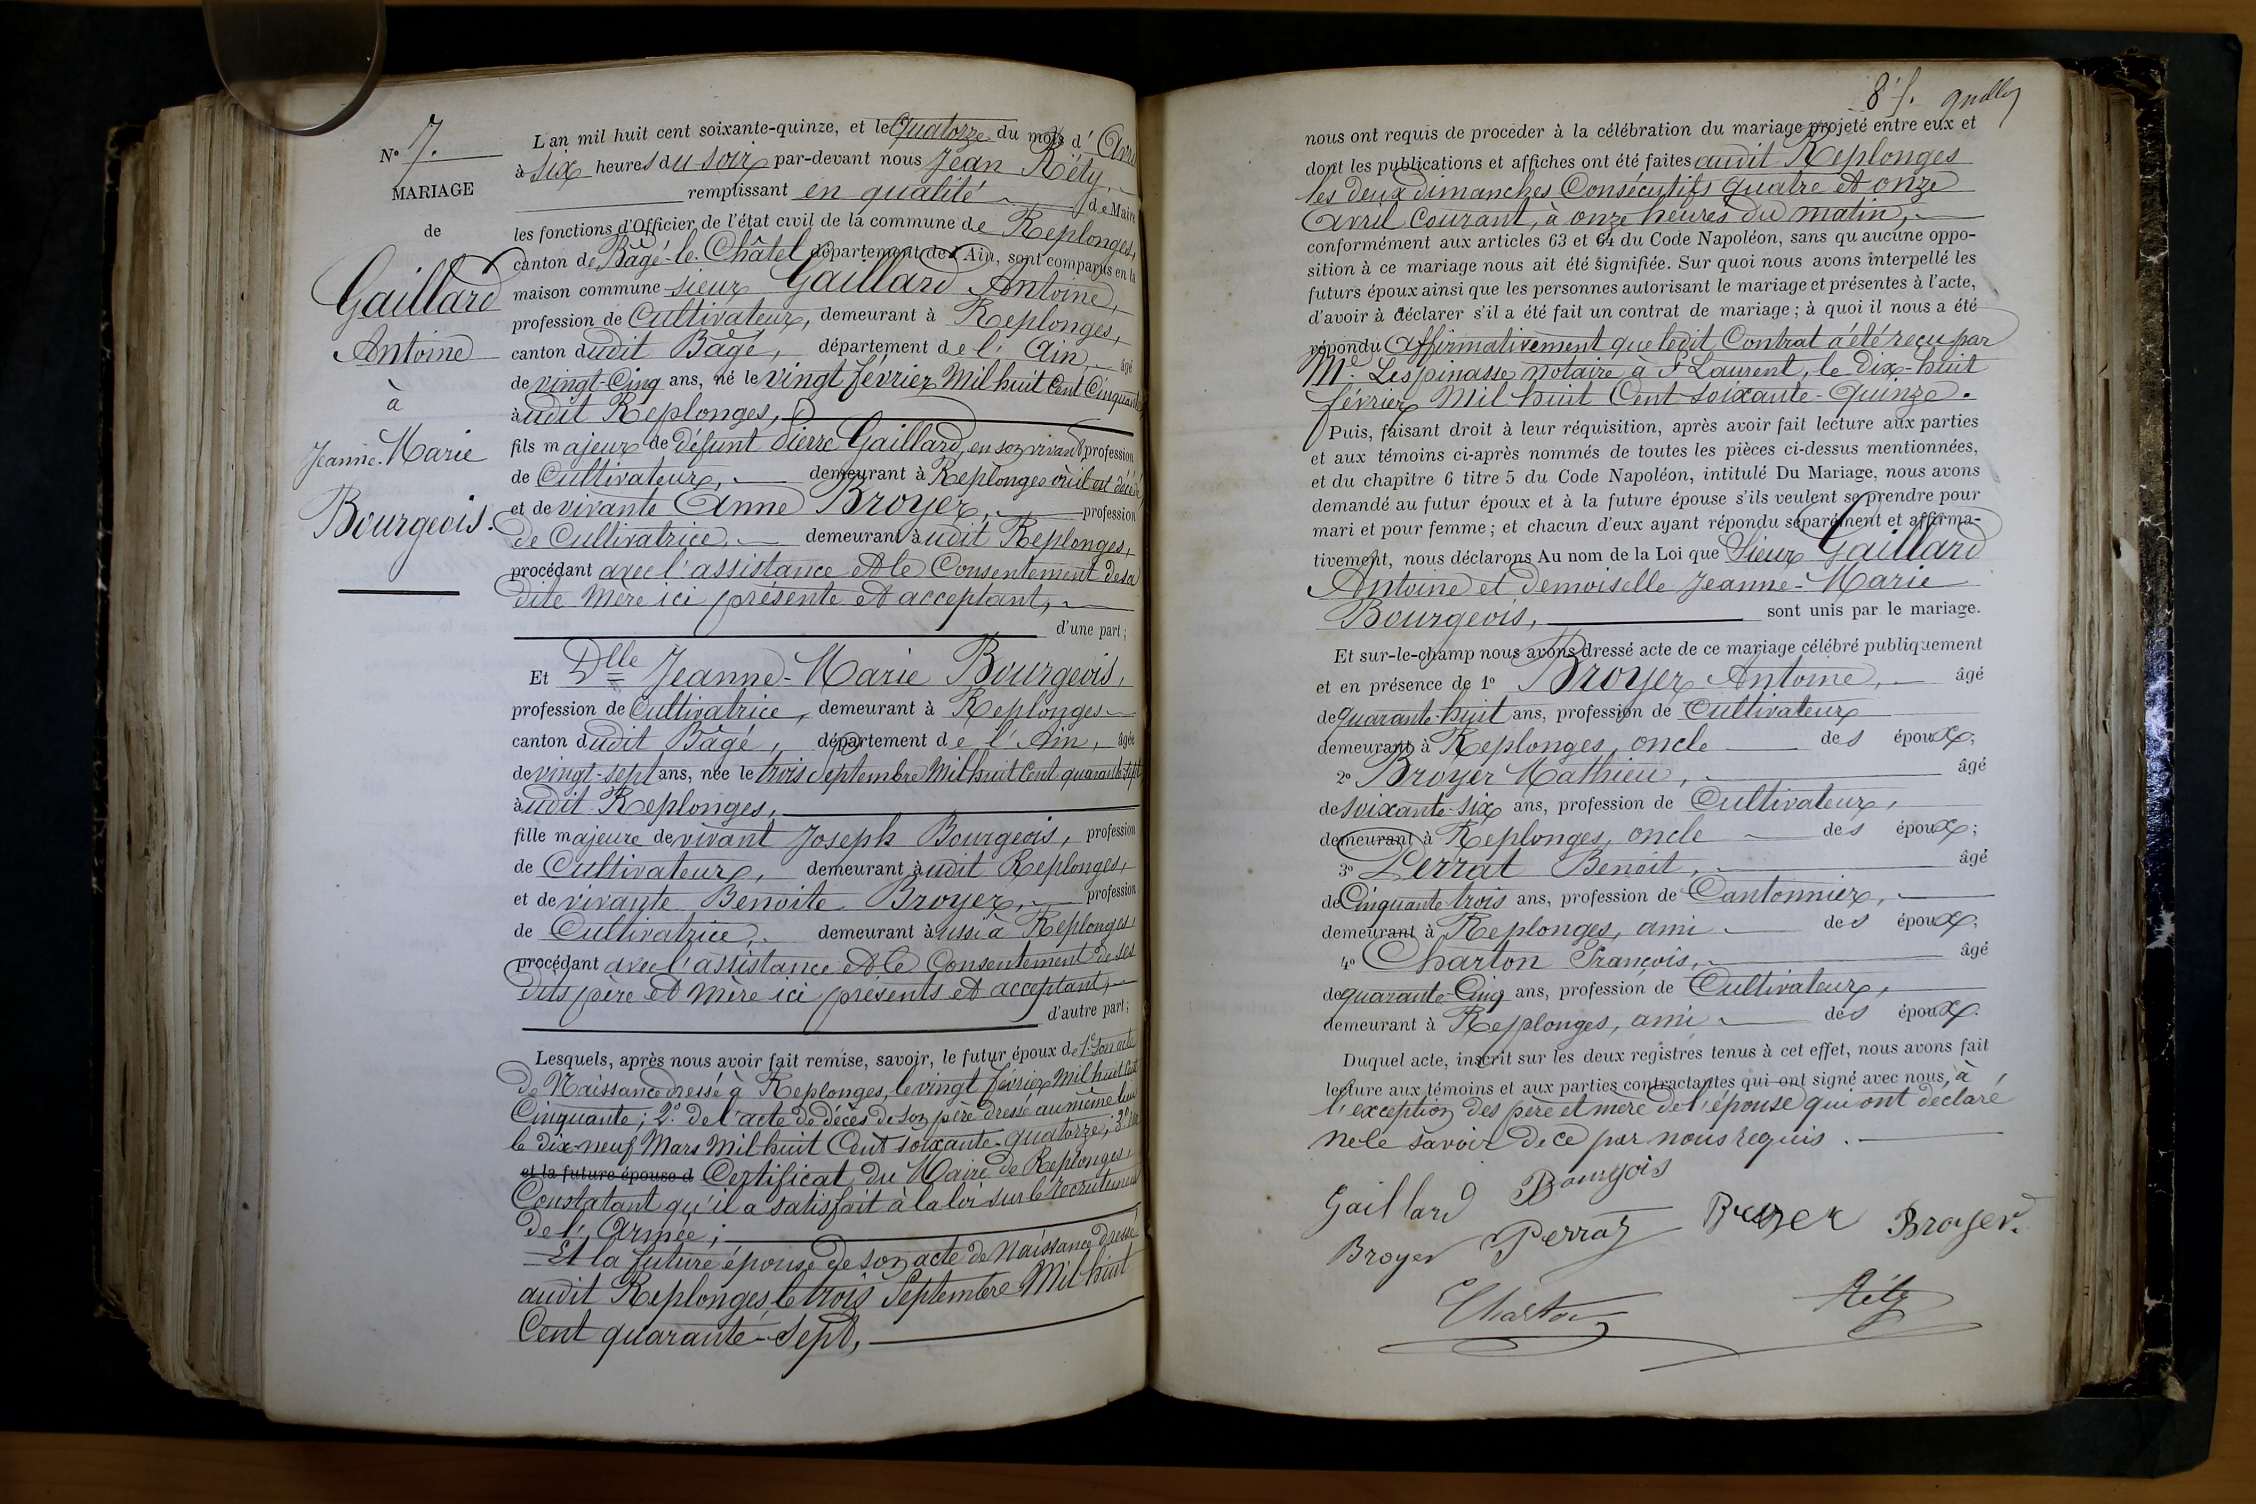 N° 7.
MARIAGE
de
Gaillard
Antoine
à
Jeanne-Marie
Bourgeois.
L'an mil huit cent soixante-quinze, et le Quatorze du mois d'Avril
à six heures du soir par-devant nous Jean Réty,
remplissant en qualité de Maire
les fonctions d'Officier de l'état civil de la commune de Replonges,
canton de Bâgé-le-Châtel département de l'Ain, sont comparus en la
maison commune sieur Gaillard Antoine,
profession de Cultivateur, demeurant à Replonges,
canton dudit Bâgé, département de l'Ain, âgé
de vingt-Cinq ans, né le vingt février Mil huit Cent Cinquante
audit Replonges,
fils majeur de défunt Pierre Gaillard, en son vivant profession
de Cultivateur, demeurant à Replonges où il est décédé
et de vivante Anne Broyer, profession
de Cultivatrice, demeurant audit Replonges,
procédant avec l'assistance et le Consentement de sa
dite Mère ici présente et acceptant,
d'une part;
Et Dlle Jeanne-Marie Bourgeois,
profession de Cultivatrice, demeurant à Replonges
canton dudit Bâgé, département de l'Ain, âgée
de vingt-sept ans, née le trois Septembre Mil huit Cent quarante-sept
audit Replonges,
fille majeure de vivant Joseph Bourgeois, profession
de Cultivateur, demeurant audit Replonges,
et de vivante Benoite Broyer, profession
de Cultivatrice, demeurant aussi à Replonges
procédant avec l'assistance et le Consentement de ses
dits père et Mère ici présents et acceptant,
d'autre part;
Lesquels, après nous avoir fait remise, savoir, le futur époux de 1° son acte
de Naissance dressé à Replonges, le vingt février Mil huit Cent
Cinquante; 2° de l'acte de décès de son père dressé au même lieu
le dix-neuf Mars Mil huit Cent soixante-quatorze; 3° d'un
et la future épouse d Certificat du Maire de Replonges,
Constatant qu'il a satisfait à la loi sur le recrutement
de l'Armée;
Et la future épouse de son acte de Naissance dressé
audit Replonges, le trois Septembre Mil huit
Cent quarante-Sept,
8 f.
nous ont requis de procéder à la célébration du mariage projeté entre eux et
dont les publications et affiches ont été faites audit Replonges
les deux dimanches Consécutifs quatre et onze
Avril Courant, à onze heures du matin,
conformément aux articles 63 et 64 du Code Napoléon, sans qu'aucune oppo-
sition à ce mariage nous ait été signifiée. Sur quoi nous avons interpellé les
futurs époux ainsi que les personnes autorisant le mariage et présentes à l'acte,
d'avoir à déclarer s'il a été fait un contrat de mariage; à quoi il nous a été
répondu Affirmativement que ledit Contrat a été reçu par
Me. Lespinasse notaire à St Laurent, le Dix-huit
février Mil huit Cent soixante-Quinze.
Puis, faisant droit à leur réquisition, après avoir fait lecture aux parties
et aux témoins ci-après nommés de toutes les pièces ci-dessus mentionnées,
et du chapitre 6 titre 5 du Code Napoléon, intitulé Du Mariage, nous avons
demandé au futur époux et à la future épouse s'ils veulent se prendre pour
mari et pour femme; et chacun d'eux ayant répondu séparément et affirma-
tivement, nous déclarons Au nom de la Loi que Sieur Gaillard
Antoine et Demoiselle Jeanne-Marie
Bourgeois, sont unis par le mariage.
Et sur-le-champ nous avons dressé acte de ce mariage célébré publiquement
et en présence de 1° Broyer Antoine, âgé
de quarante-huit ans, profession de Cultivateur
demeurant à Replonges, oncle des époux;
2° Broyer Mathieu, âgé
de soixante-six ans, profession de Cultivateur,
demeurant à Replonges, oncle des époux;
3° Perrat Benoit, âgé
de Cinquante trois ans, profession de Cantonnier,
demeurant à Replonges, ami des époux;
4° Charton François, âgé
de quarante-Cinq ans, profession de Cultivateur,
demeurant à Replonges, ami des époux.
Duquel acte, inscrit sur les deux registres tenus à cet effet, nous avons fait
lecture aux témoins et aux parties contractantes qui ont signé avec nous, à
l'exception des père et mère de l'épouse qui ont déclaré
ne le savoir de ce par nous requis.
Gaillard Bourgois
Broyer Perrat Broyer Broyer
Charton Réty